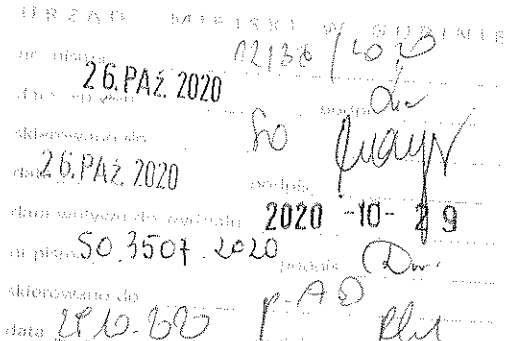 URZĄD MIEJSKI W GUBINIE
nr pisma 12136/2020
26. PAŹ. 2020
podpis
skierowano do SO
data 26. PAŹ. 2020 podpis
data wpływu do wydziału 2020 -10- 29
nr pisma SO.3507.2020 podpis
skierowano do p. AD
data 29.10.2020